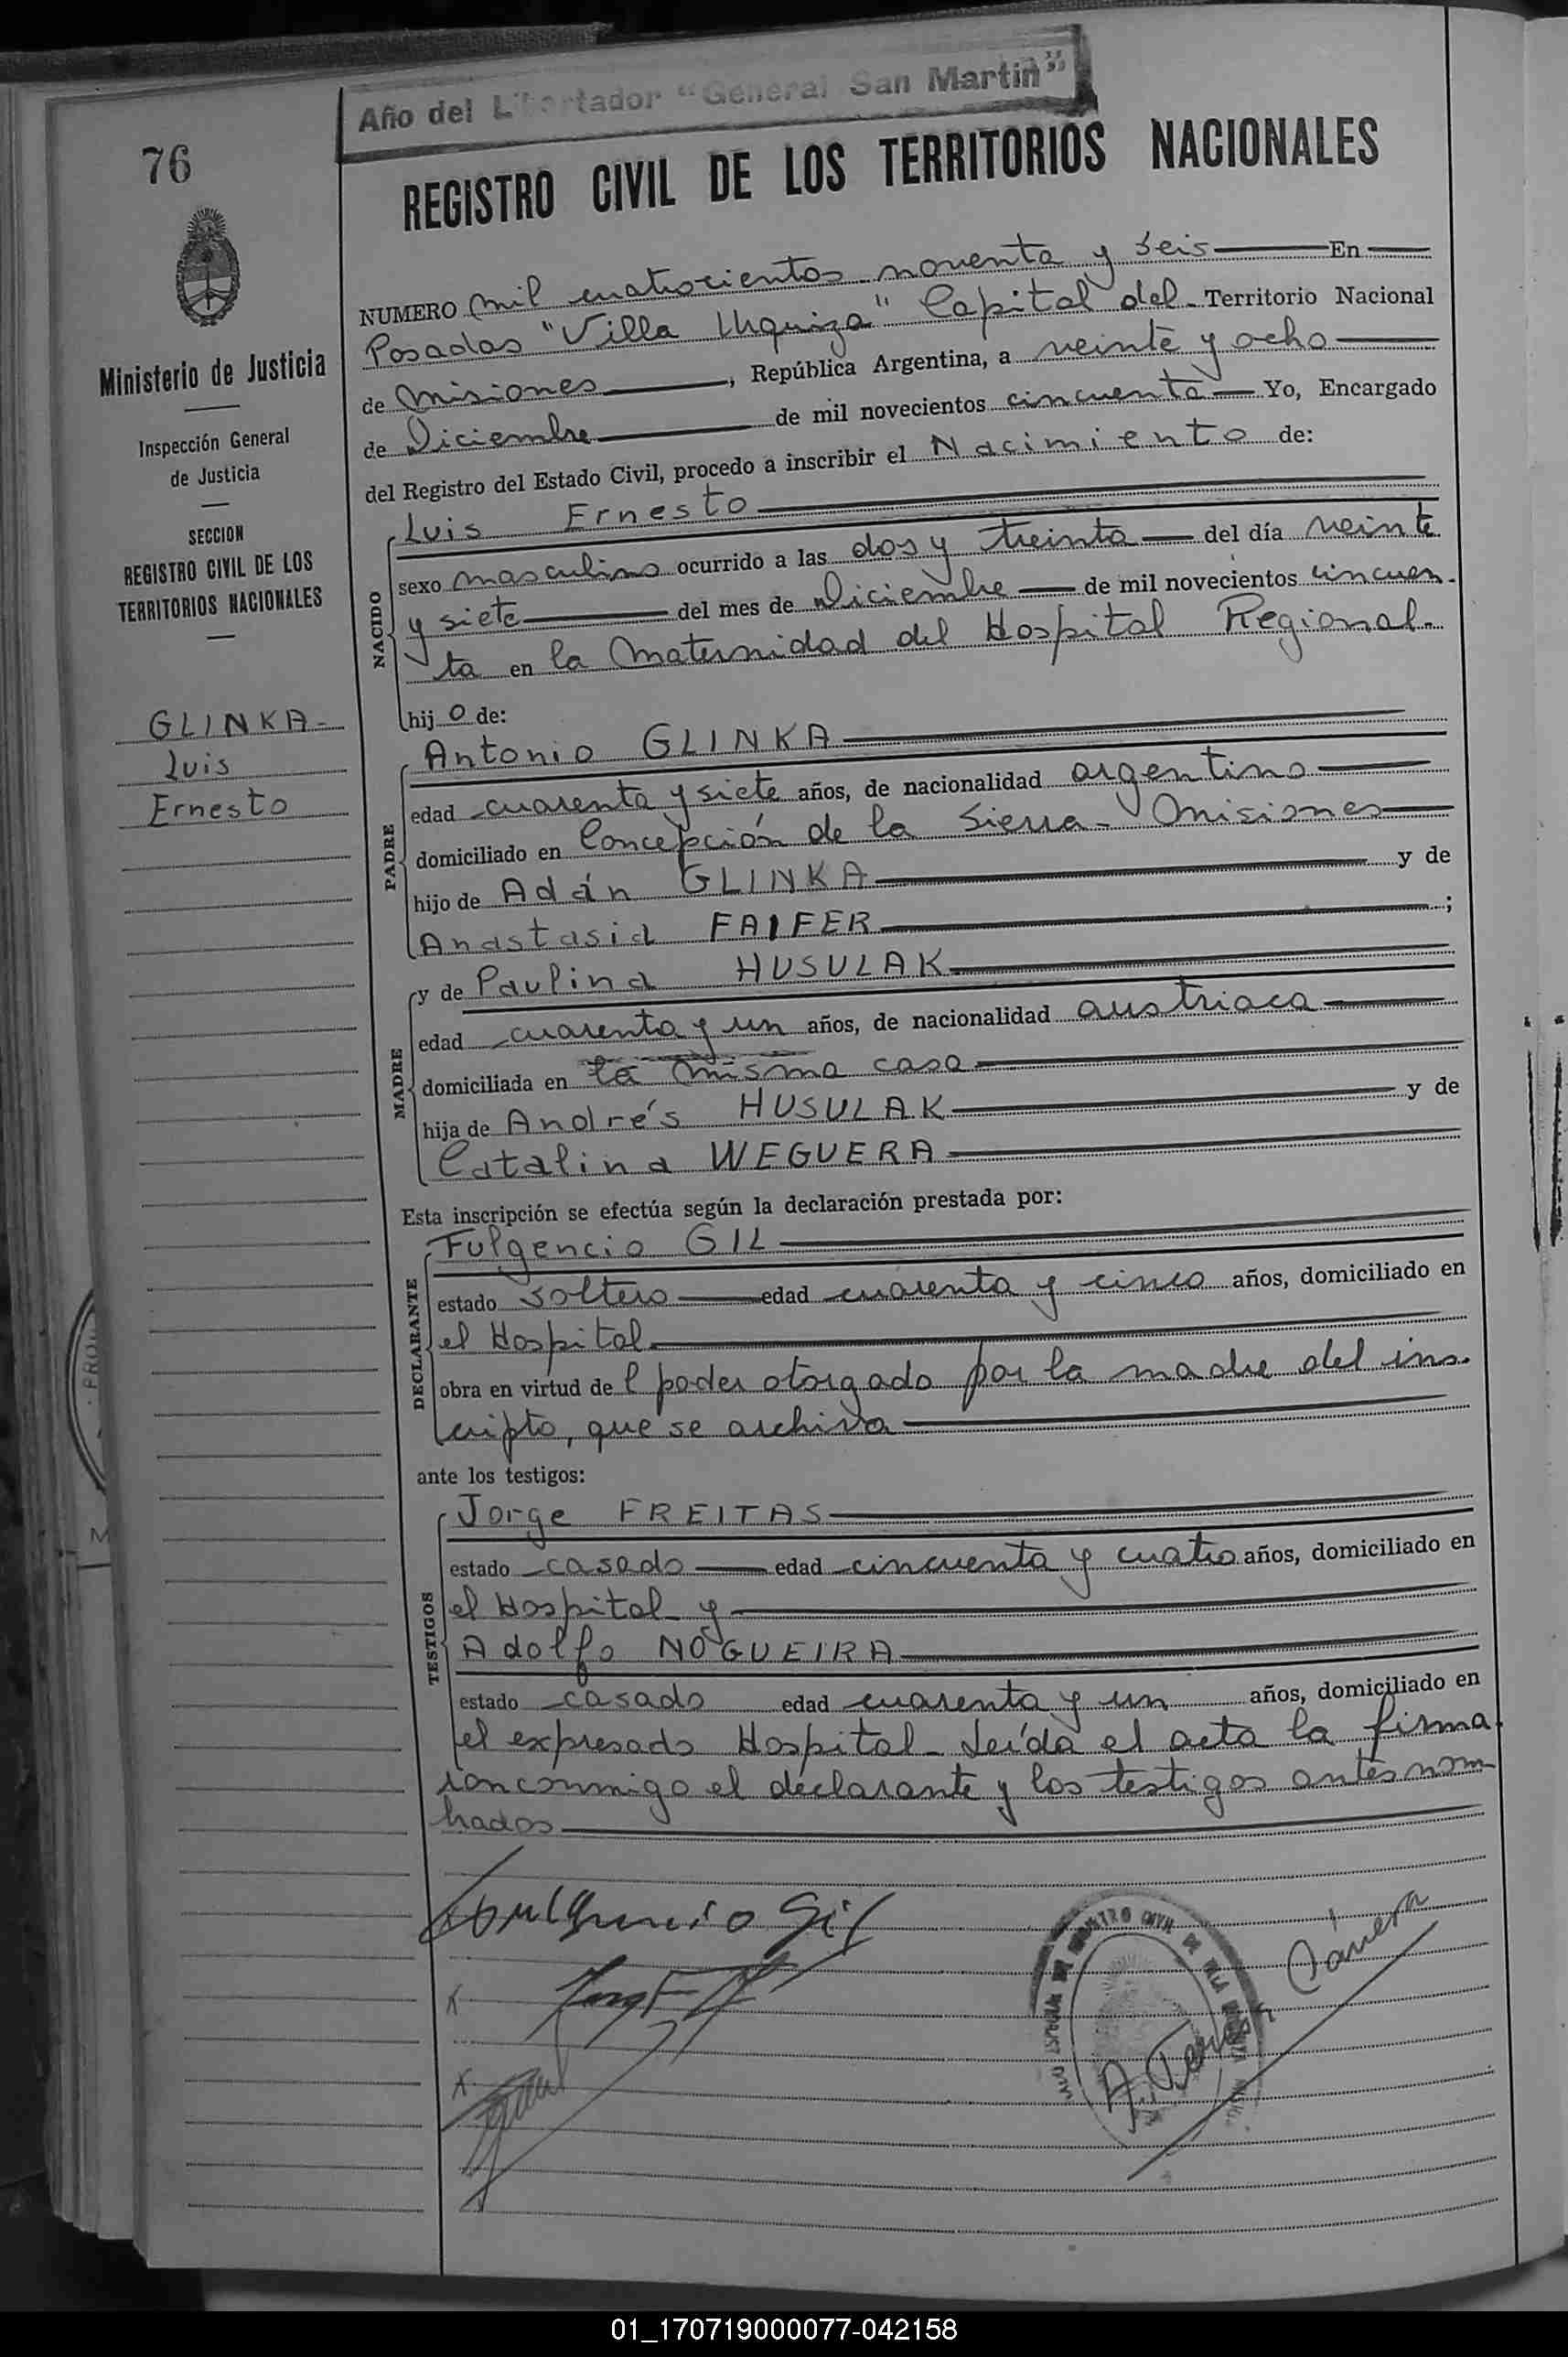 Año del Libertador "General San Martin"
76
REGISTRO CIVIL DE LOS TERRITORIOS NACIONALES
Ministerio de Justicia
Inspección General
de Justicia
SECCION
REGISTRO CIVIL DE LOS
TERRITORIOS NACIONALES
GLINKA-
Luis
Ernesto
NUMERO mil cuatrocientos noventa y seis En
Posadas "Villa Urquiza" Capital del Territorio Nacional
de Misiones, República Argentina, a veinte y ocho
de Diciembre de mil novecientos cincuenta Yo, Encargado
del Registro del Estado Civil, procedo a inscribir el Nacimiento de:
NACIDO
Luis Ernesto
sexo masculino ocurrido a las dos y treinta del día veinte
y siete del mes de Diciembre de mil novecientos cincuen-
ta en la Maternidad del Hospital Regional.
hijo de:
PADRE
Antonio GLINKA
edad cuarenta y siete años, de nacionalidad argentino
domiciliado en Concepción de la Sierra - Misiones
hijo de Adán GLINKA y de
Anastasia FAIFER;
MADRE
y de Paulina HUSULAK
edad cuarenta y un años, de nacionalidad austriaca
domiciliada en la misma casa
hija de Andrés HUSULAK y de
Catalina WEGUERA
Esta inscripción se efectúa según la declaración prestada por:
DECLARANTE
Fulgencio GIL
estado soltero edad cuarenta y cinco años, domiciliado en
el Hospital
obra en virtud del poder otorgado por la madre del ins-
cripto, que se archiva
ante los testigos:
TESTIGOS
Jorge FREITAS
estado casado edad cincuenta y cuatro años, domiciliado en
el Hospital y
Adolfo NOGUEIRA
estado casado edad cuarenta y un años, domiciliado en
el expresado Hospital - Leída el acta la firma
ron conmigo el declarante y los testigos antes nom-
brados
Gil
01_170719000077-042158